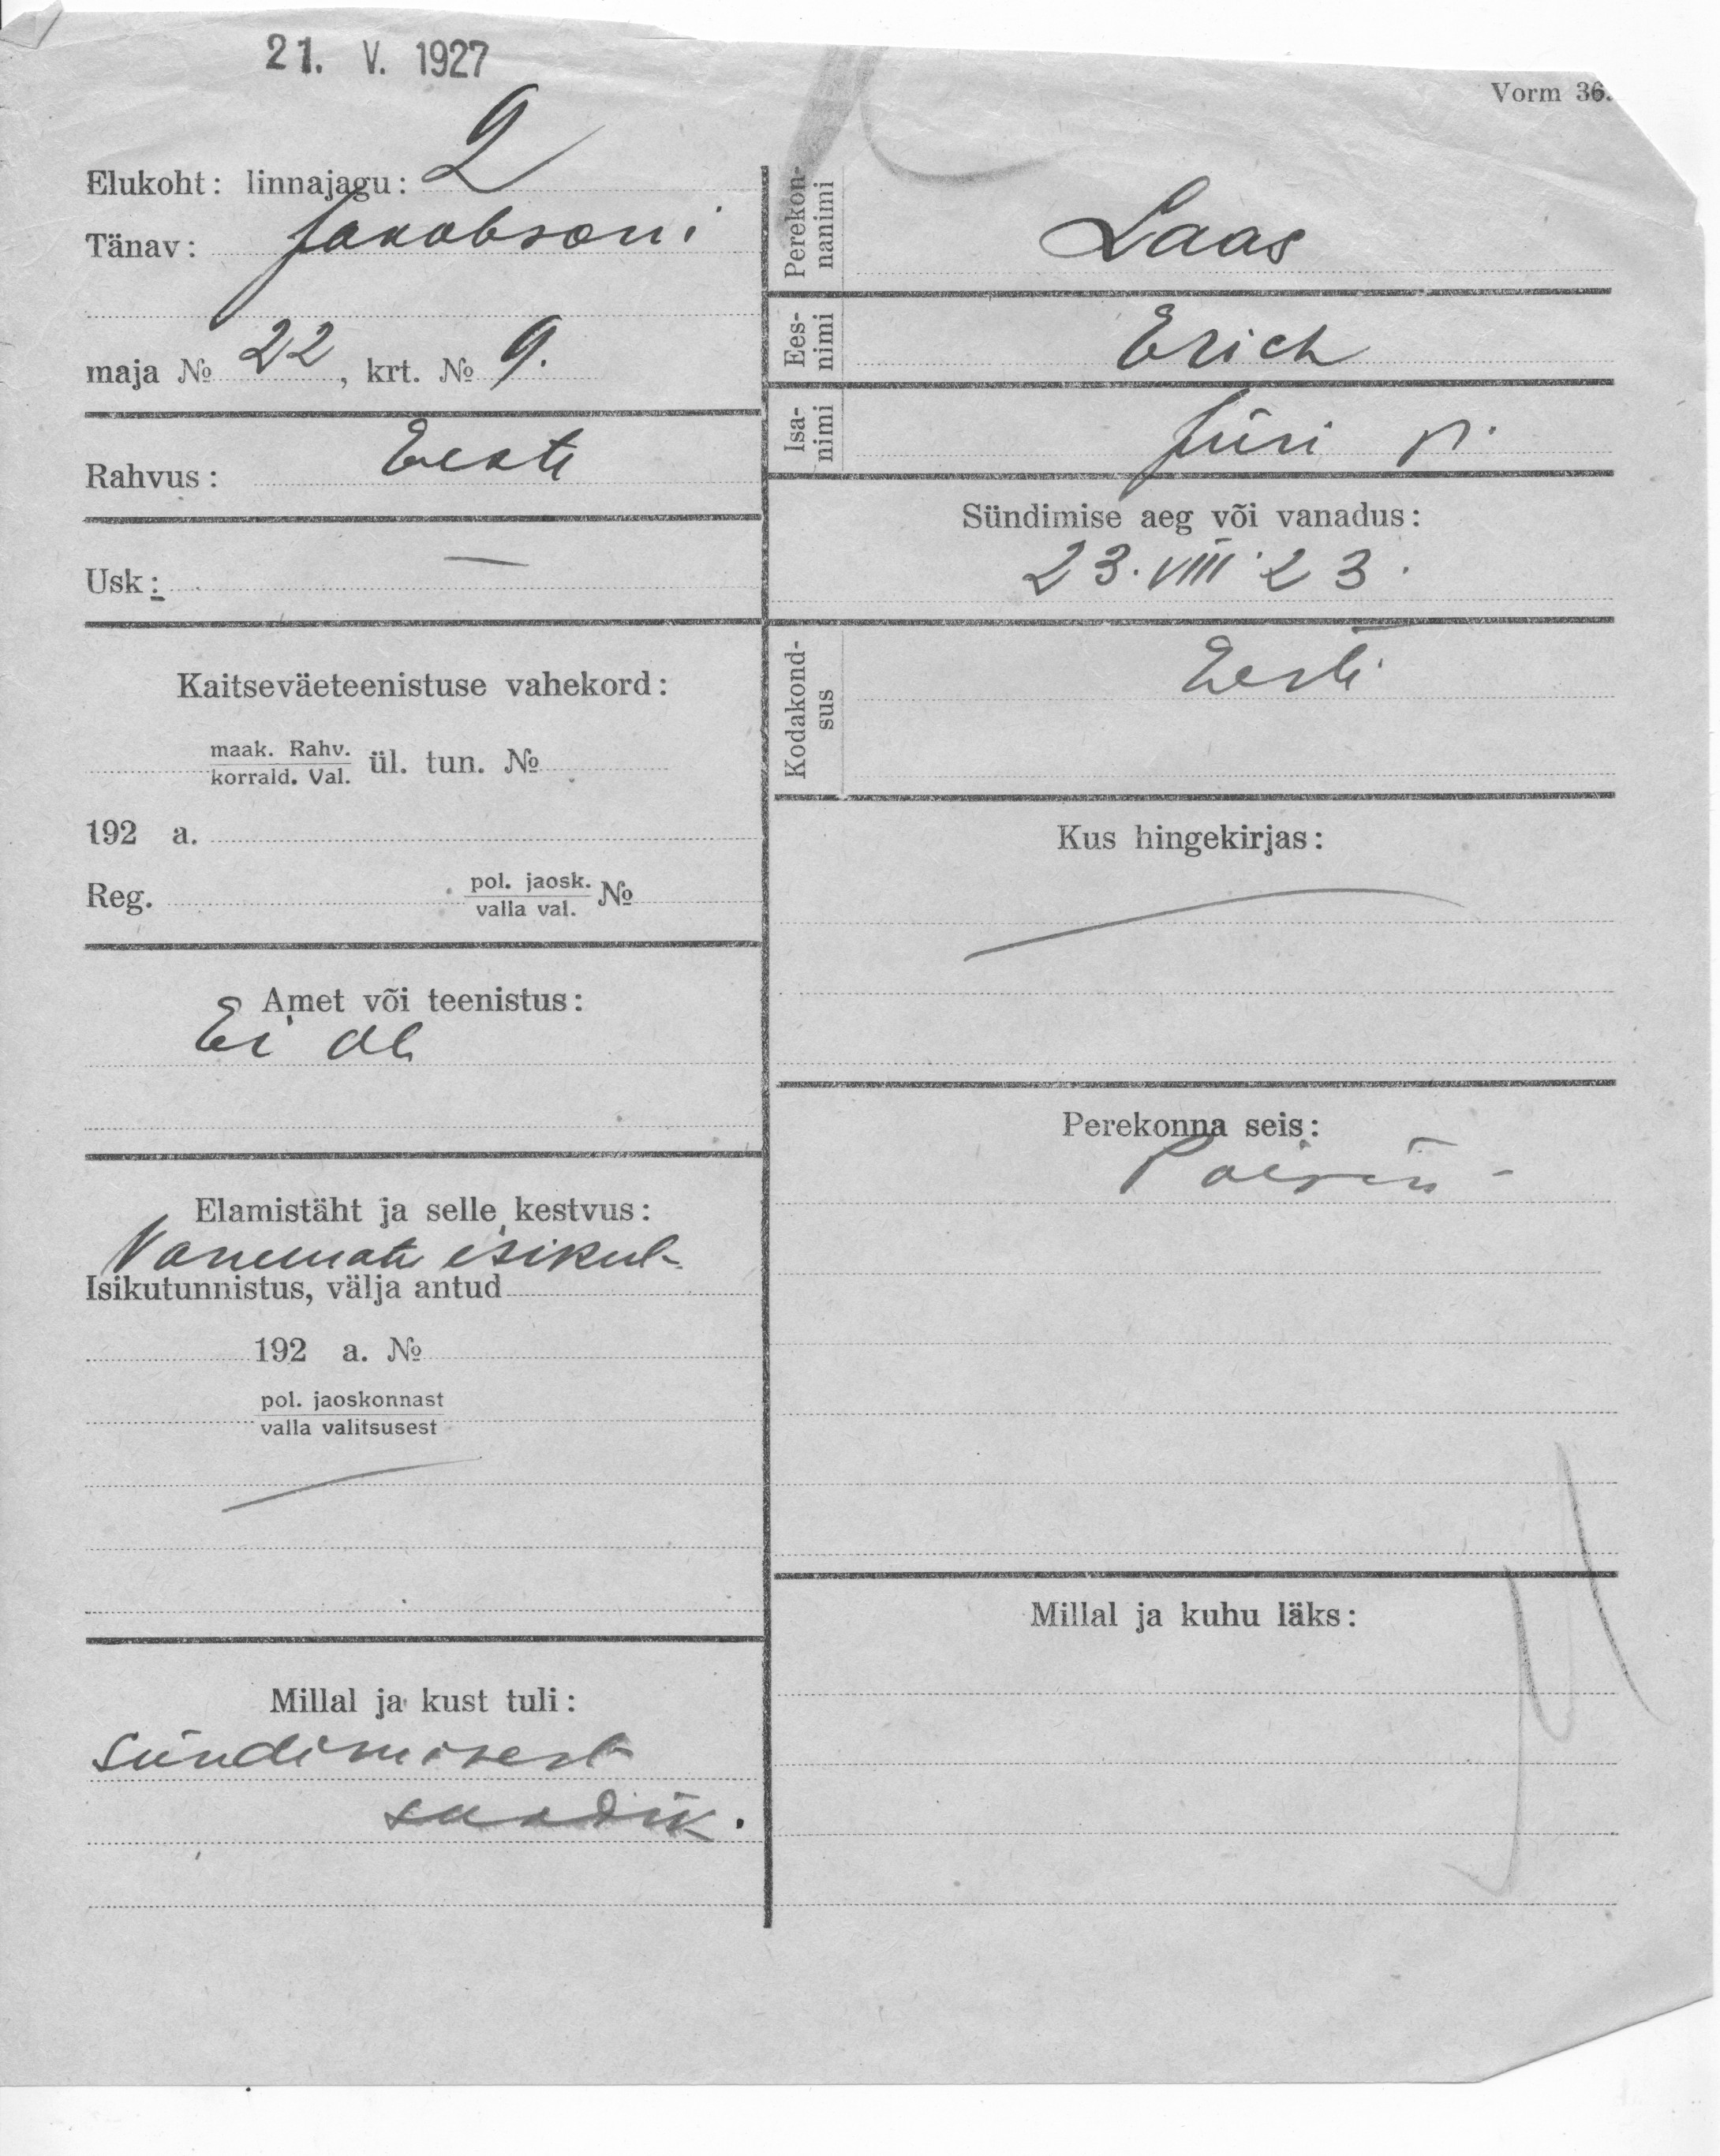 21. V. 1927
Vorm 36.
Elukoht: linnajagu: 2
Tänav: Jakobsoni
maja № 22, krt. № 9.
Rahvus: Eesti
Usk: —
Kaitseväeteenistuse vahekord:
maak. Rahv.
korrald. Val.
ül. tun. №
192 a.
Reg. pol. jaosk. №
valla val.
Amet või teenistus:
Ei ole
Elamistäht ja selle kestvus:
Vanemate isikul
Isikutunnistus, välja antud
192 a. №
pol. jaoskonnast
valla valitsusest
Millal ja kust tuli:
Sündimisest
saadik.
Perekonnanimi Laas
Eesnimi Erich
Isanimi Jüri p.
Sündimise aeg või vanadus:
23. VIII 23.
Kodakondsus Eesti
Kus hingekirjas:
Perekonna seis:
Millal ja kuhu läks: